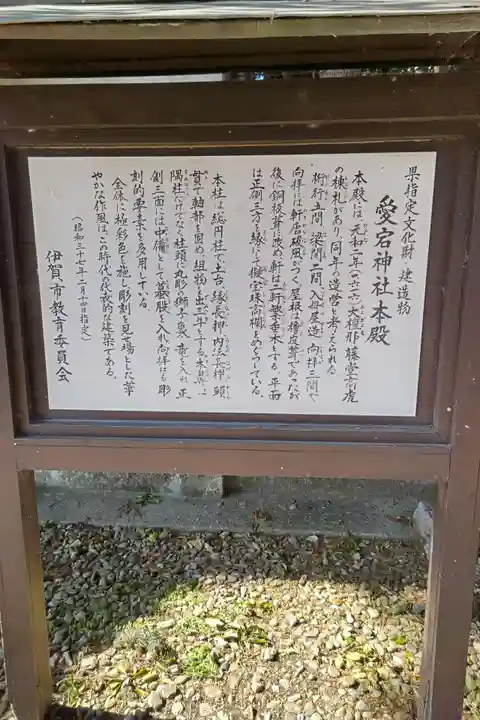 県指定文化財 建造物
愛宕神社本殿
本殿には、元和二年(一六一六)大檀那藤堂高虎
の棟札があり、同年の造営と考えられる
桁行五間、梁間二間、入母屋造、向拝三間で
向拝には軒唐破風がつく。屋根は檜皮葺であったが
後に銅板葺に改め、軒は二軒繁垂木とする。平面
は正側三方を縁とし擬宝珠高欄をめぐらしている。
本柱は総円柱で土台、縁長押、内法長押、頭
貫で軸部を固め、組物は出三斗とする。木鼻は
隅柱だけでなく柱頭に丸彫の獅子、象、竜を入れ、正
側三面には中備として蟇股を入れ、向拝にも彫
刻的要素を多用している。
全体に極彩色を施し、彫刻を見せ場とした華
やかな作風は、この時代の代表的な建築である。
(昭和三十七年二月十四日指定)
伊賀市教育委員会